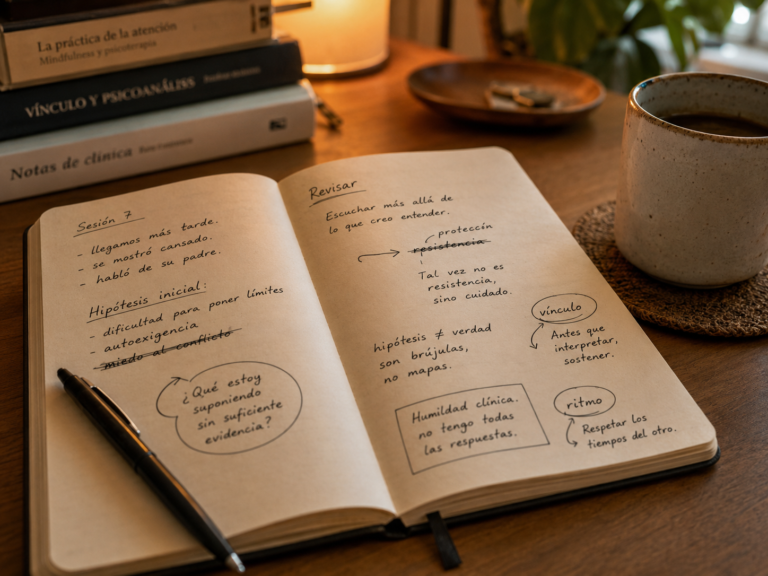 La práctica de la atención
Mindfulness y psicoterapia
VÍNCULO Y PSICOANÁLISIS
Notas de clínica
Sesión 7
- llegamos más tarde.
- se mostró cansado.
- habló de su padre.
Hipótesis inicial:
- dificultad para poner límites
- autoexigencia
miedo al conflicto
¿Qué estoy
suponiendo
sin suficiente
evidencia?
Revisar
Escuchar más allá de
lo que creo entender.
protección
resistencia
Tal vez no es
resistencia,
sino cuidado.
hipótesis ≠ verdad
son brújulas,
no mapas.
Humildad clínica.
no tengo todas
las respuestas.
vínculo
Antes que
interpretar,
sostener.
ritmo
Respetar los
tiempos del otro.